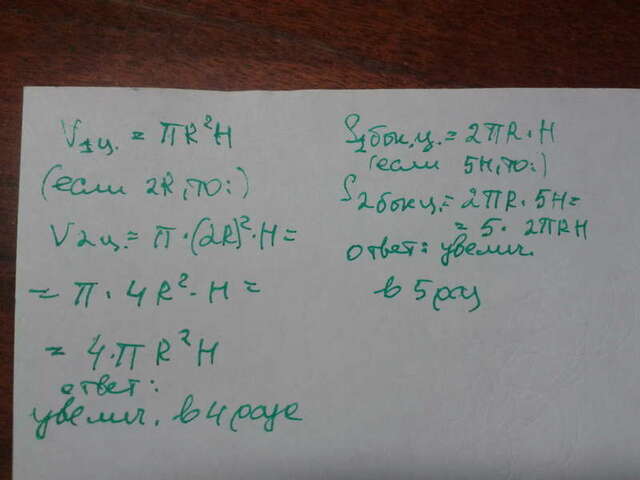 V₁ц. = πR²H
(если 2R, то:)
V2ц. = π·(2R)²·H =
= π·4R²·H =
= 4·πR²H
ответ:
увелич. в 4 раза
S₁бок.ц. = 2πR·H
(если 5H, то:)
S2бок.ц. = 2πR·5H =
= 5·2πRH
ответ: увелич.
в 5 раз